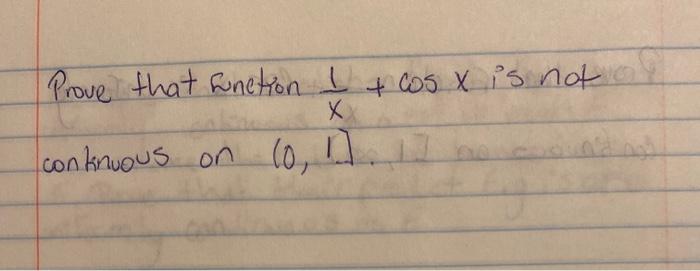 Prove that function 1/x + cos x is not
continuous on (0, 1].